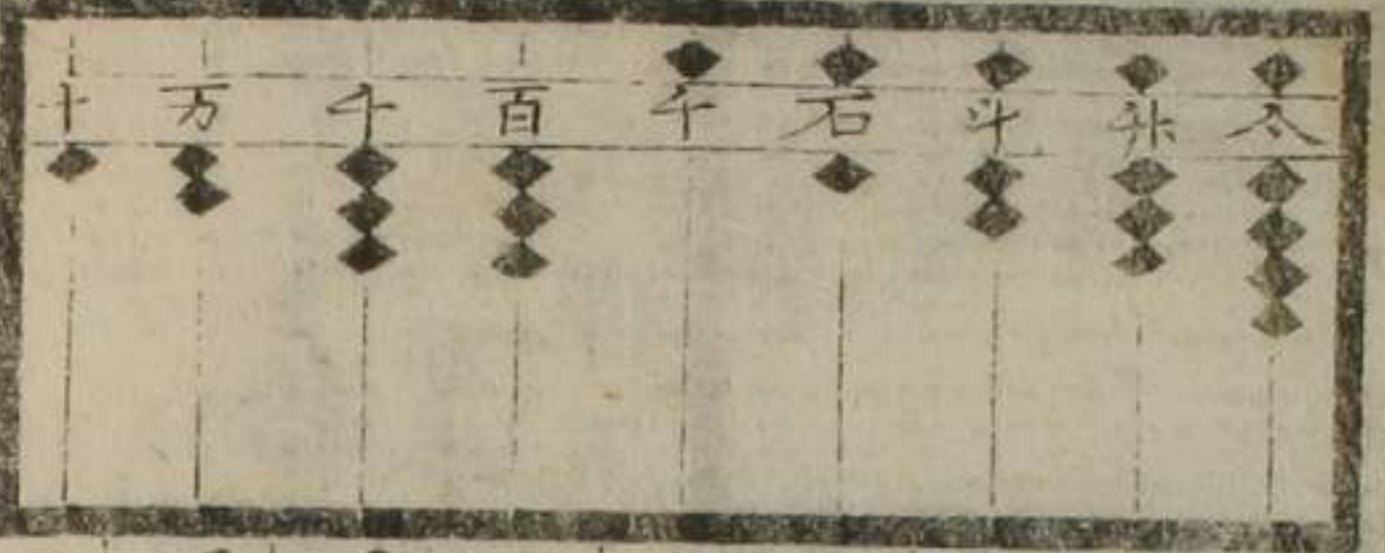 十万千百千石斗升合